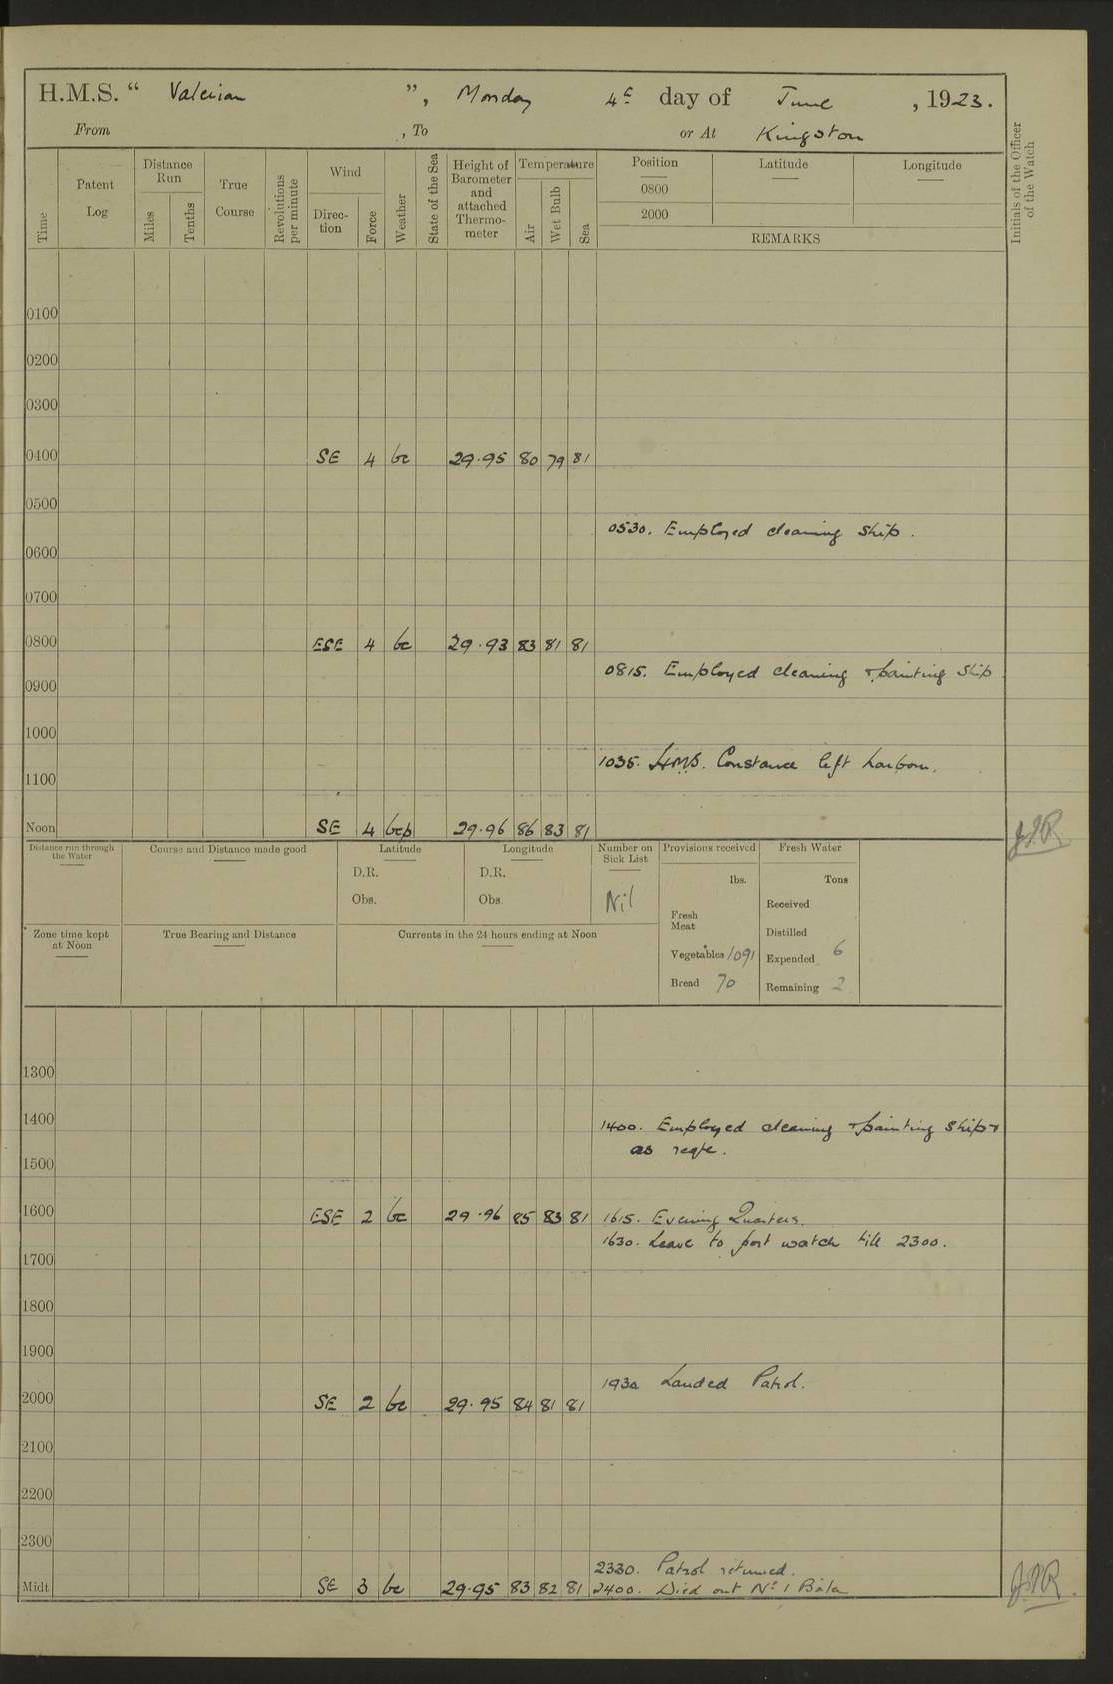 H.M.S. “ Valerian ”, Monday 4th day of June , 1923.
From , To or At Kingston
Time
Patent Log
Distance Run
Miles
Tenths
True Course
Revolutions per minute
Wind
Direc-tion
Force
Weather
State of the Sea
Height of Barometer and attached Thermo-meter
Temperature
Air
Wet Bulb
Sea
Position Latitude Longitude
0800
2000
REMARKS
Initials of the Officer of the Watch
0100
0200
0300
0400 SE 4 bc 29.95 80 79 81
0500
0530. Employed cleaning ship.
0600
0700
0800 ESE 4 bc 29.93 83 81 81
0815. Employed cleaning & painting ship
0900
1000
1035. H.M.S. Constance left harbour.
1100
Noon SE 4 bcp 29.96 86 83 81
Distance run through the Water
Course and Distance made good
Latitude
D.R.
Obs.
Longitude
D.R.
Obs.
Number on Sick List
Nil
Provisions received
lbs.
Fresh Meat
Vegetables 1091
Bread 70
Fresh Water
Tons
Received
Distilled
Expended 6
Remaining 2
Zone time kept at Noon
True Bearing and Distance
Currents in the 24 hours ending at Noon
1300
1400
1400. Employed cleaning & painting ship &
as reqte.
1500
1600 ESE 2 bc 29.96 85 83 81 1615. Evening Quarters.
1630. Leave to port watch till 2300.
1700
1800
1900
1930 Landed Patrol.
2000 SE 2 bc 29.95 84 81 81
2100
2200
2300
2330. Patrol returned.
Midt. SE 3 bc 29.95 83 82 81 2400. Died out No 1 Boiler